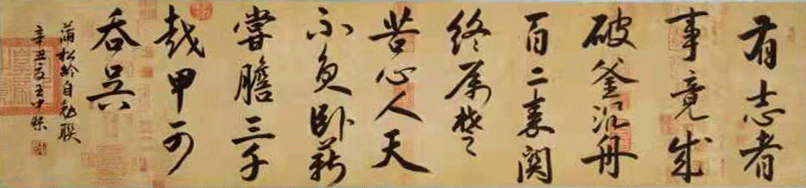 有志者
事竟成
破釜沉舟
百二秦関
终属楚
苦心人天
不负卧薪
嘗膽三千
越甲可
吞吴
蒲松龄自勉联
辛丑夏王中